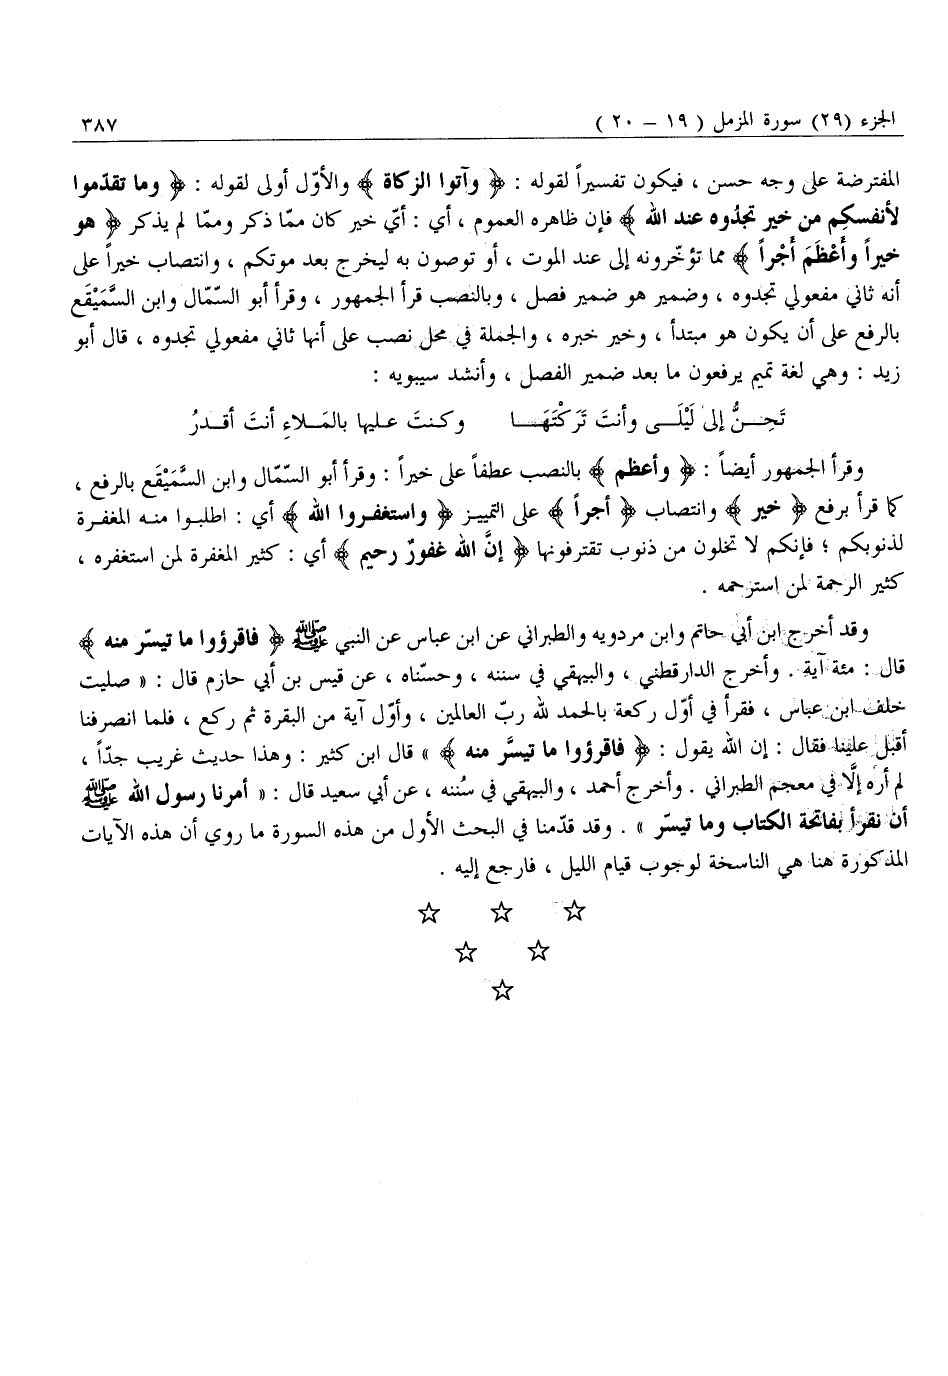 الجزء (٢٩) سورة المزمل ( ١٩ – ٢٠ ) ٣٨٧
المفترضة على وجه حسن ، فيكون تفسيراً لقوله : ﴿ وآتوا الزكاة ﴾ والأوّل أولى لقوله : ﴿ وما تقدّموا
لأنفسكم من خير تجدُوه عند الله ﴾ فإن ظاهره العموم ، أي : أيّ خير كان ممّا ذكر وممّا لم يذكر ﴿ هو
خيراً وأَعْظَمَ أَجْراً ﴾ مما تؤخّرونه إلى عند الموت ، أو توصون به ليخرج بعد موتكم ، وانتصاب خيراً على
أنه ثاني مفعولي تجدوه ، وضمير هو ضمير فصل ، وبالنصب قرأ الجمهور ، وقرأ أبو السّمّال وابن السَّمَيْقَع
بالرفع على أن يكون هو مبتدأ ، وخير خبره ، والجملة في محل نصب على أنها ثاني مفعولي تجدوه ، قال أبو
زيد : وهي لغة تميم يرفعون ما بعد ضمير الفصل ، وأنشد سيبويه :
تَحِـنُّ إلىٰ لَيْلَـى وأنتَ تَرَكْتَهَـا وكـنتَ عـليها بالمَـلاءِ أنتَ أقـدرُ
وقرأ الجمهور أيضاً : ﴿ وأعظم ﴾ بالنصب عطفاً على خيراً : وقرأ أبو السّمّال وابن السَّمَيْقَع بالرفع ،
كما قرأ برفع ﴿ خير ﴾ وانتصاب ﴿ أجراً ﴾ على التمييز ﴿ واستغفروا الله ﴾ أي : اطلبوا منه المغفرة
لذنوبكم ؛ فإنكم لا تخلون من ذنوب تقترفونها ﴿ إنَّ الله غفورٌ رحيم ﴾ أي : كثير المغفرة لمن استغفره ،
كثير الرحمة لمن استرحمه .
وقد أخرج ابن أبي حاتم وابن مردويه والطبراني عن ابن عباس عن النبي ﷺ ﴿ فاقرؤوا ما تيسّر منه ﴾
قال : مئة آية . وأخرج الدارقطني ، والبيهقي في سننه ، وحسّناه ، عن قيس بن أبي حازم قال : « صليت
خلف ابن عباس ، فقرأ في أوّل ركعة بالحمد لله ربّ العالمين ، وأوّل آية من البقرة ثم ركع ، فلما انصرفنا
أقبل علينا فقال : إن الله يقول : ﴿ فاقرؤوا ما تيسَّر منه ﴾ » قال ابن كثير : وهذا حديث غريب جدّاً ،
لم أره إلّا في معجم الطبراني . وأخرج أحمد ، والبيهقي في سُننه ، عن أبي سعيد قال : « أمرنا رسول الله ﷺ
أن نقرأ بفاتحة الكتاب وما تيسّر » . وقد قدّمنا في البحث الأول من هذه السورة ما روي أن هذه الآيات
المذكورة هنا هي الناسخة لوجوب قيام الليل ، فارجع إليه .